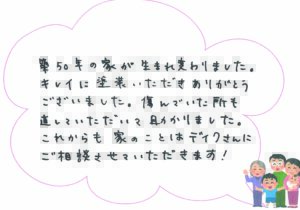 築50年の家が生まれ変わりました。
キレイに塗装いただきありがとう
ございました。傷んでいた所も
直していただいて助かりました。
これからも家のことはデイクさんに
ご相談させていただきます！